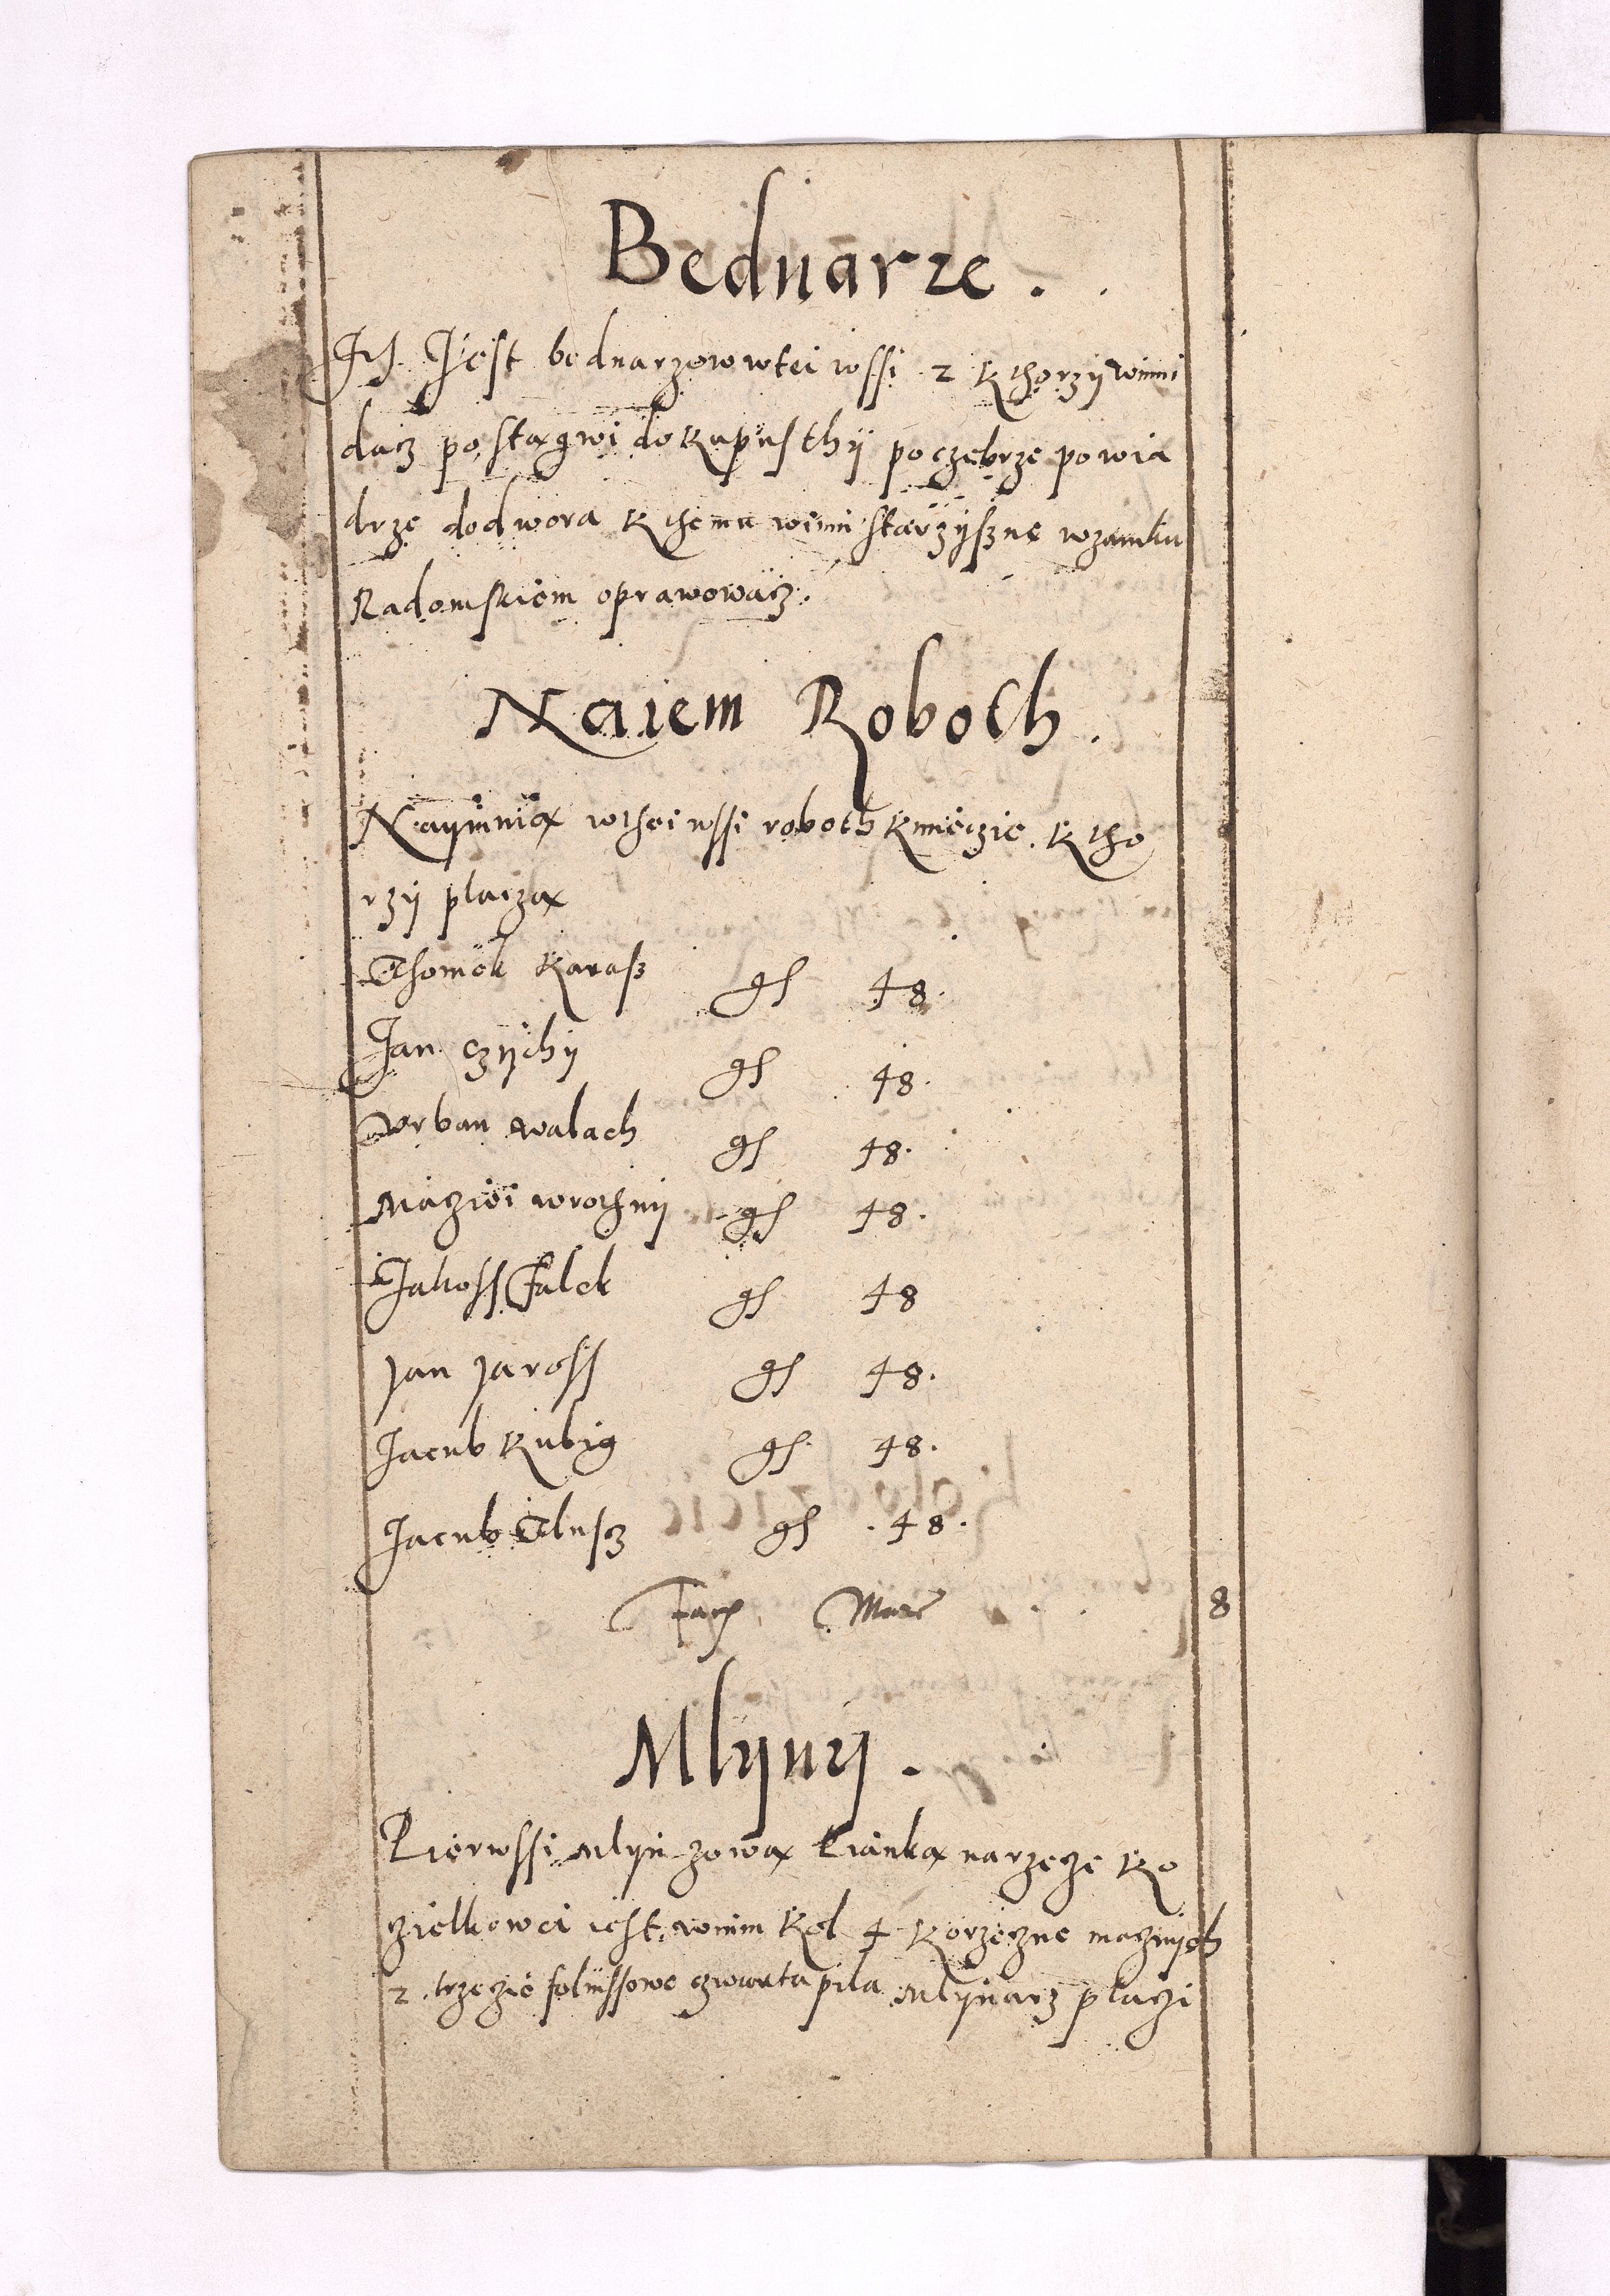 Bednarze.
Ich Jest bednarzow wtei wssi 2 Kthorzÿ winni
dacz po stągwi do Kapusthÿ poczebrze powia
drze dodwora Kthemu winni starzÿsne wzamku
Radomskiem oprawowacz.
Naiem Roboth.
Naÿmnią wthei wssi roboth Kmieczie. Ktho
rzÿ placzą
Thomek Karasz gs 48.
Jan czÿchÿ gs 48.
Vrban walach gs 48.
Maczwi wrothnÿ gs 48.
Jakoss Falek gs 48
Jan Jaross gs 48.
Jacub Kubig gs 48.
Jacub Tlusz gs 48.
Facit Marc 8
Mlÿnÿ.
Pierwssi Mlyn zową Lianką narzecze Ko
zielkowei iest wnim Kol 4 Korzeczne macznÿch
2. trzecie folussowe czwarta pila Mlÿnarz placzi